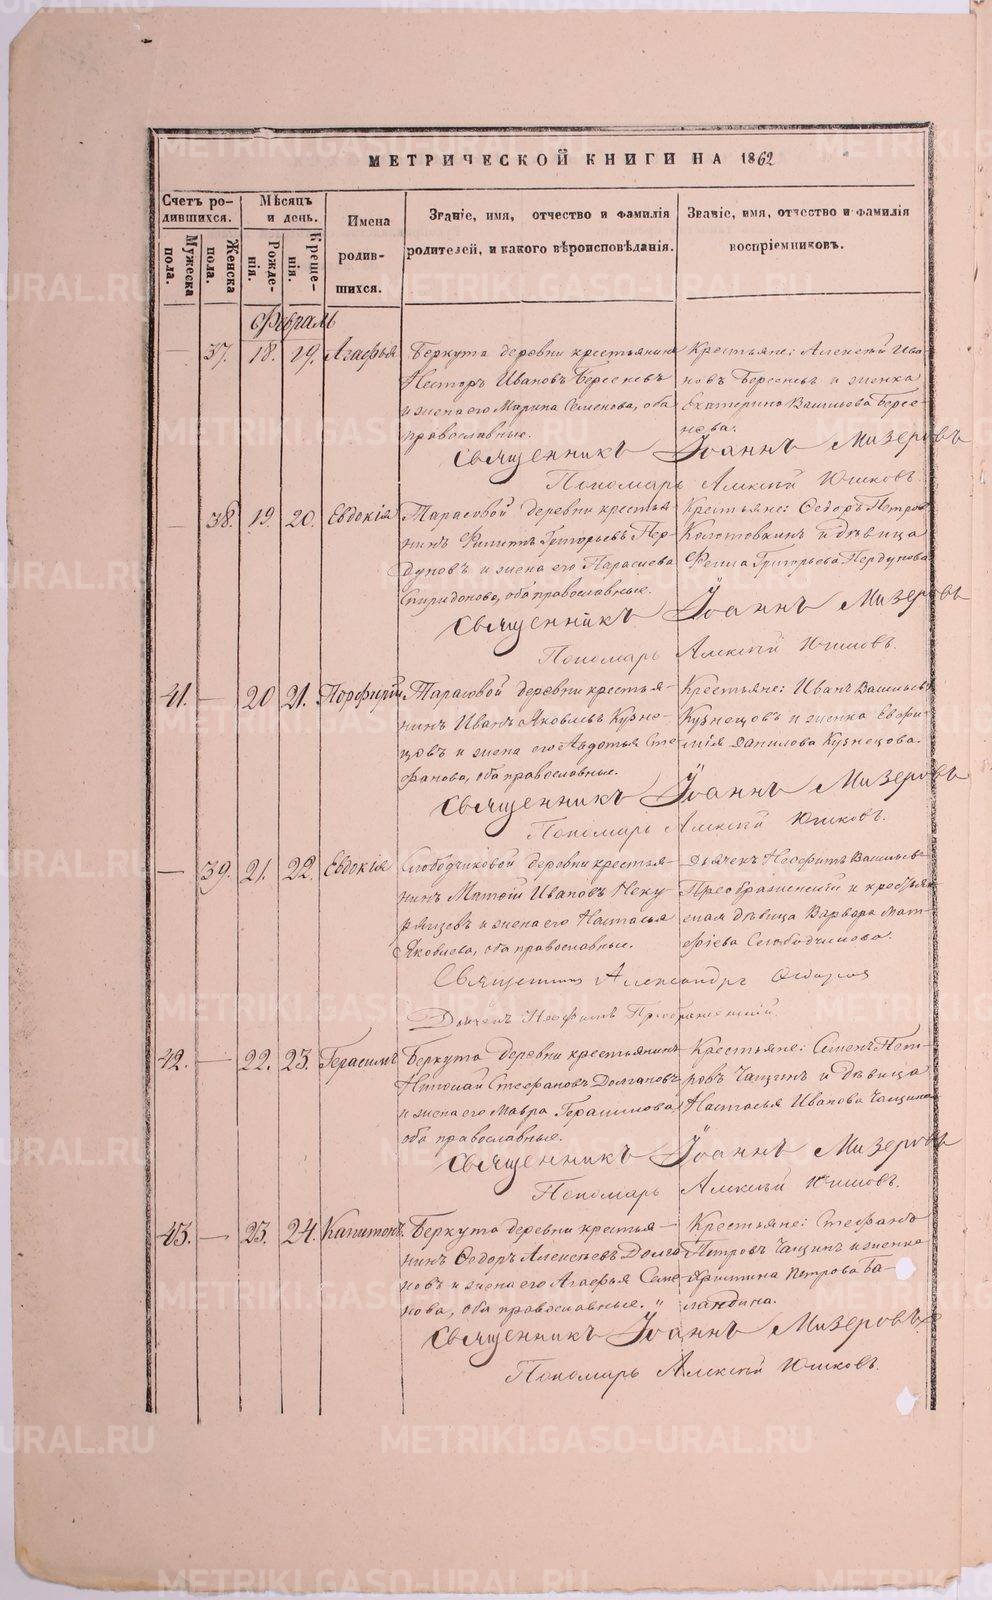 МЕТРИЧЕСКОЙ КНИГИ НА 1862
Счетъ родившихся.
Мужеска пола.
Женска пола.
Мѣсяцъ и день.
Рожденія.
Крещенія.
Имена родившихся.
Званіе, имя, отчество и фамилія
родителей, и какого вѣроисповѣданія.
Званіе, имя, отчество и фамилія
воспріемниковъ.
Февраль
— 37. 18. 19. Агафья
Беркута деревни крестьянинъ
Несторъ Ивановъ Берсеневъ
и жена его Марина Семенова, оба
православные.
Крестьяне: Алексѣй Ива-
новъ Берсеневъ и женка
Екатерина Васильева Берсе-
нева.
Священникъ Іоаннъ Мизеровъ
Пономарь Алексѣй Юшковъ.
— 38. 19. 20. Евдокія
Тарасовой деревни крестья-
нинъ Филиппъ Григорьевъ Пер-
дуновъ и жена его Парасцева
Спиридонова, оба православные.
Крестьяне: Ѳедоръ Петровъ
Колотовкинъ и дѣвица
Фекла Григорьева Пердунова
Священникъ Іоаннъ Мизеровъ
Пономарь Алексѣй Юшковъ.
41. — 20 21. Порфирій
Тарасовой деревни крестья-
нинъ Иванъ Яковлевъ Кузне-
цовъ и жена его Авдотья Сте-
фанова, оба православные.
Крестьяне: Иванъ Васильевъ
Кузнецовъ и женка Евфи-
мія Данилова Кузнецова.
Священникъ Іоаннъ Мизеровъ
Пономарь Алексѣй Юшковъ.
— 39. 21. 22. Евдокія
Слободчиковой деревни крестья-
нинъ Матѳій Ивановъ
и жена его Настасья
Яковлева, оба православные.
Дьячекъ Неофитъ Васильевъ
Преображенскій и крестьян-
ская дѣвица Варвара Мат-
фіева Слободчикова.
Священникъ Александръ
Дьячекъ Неофитъ Преображенскій.
42. — 22. 23. Герасимъ
Беркута деревни крестьянинъ
Николай Стефановъ Долгановъ
и жена его Мавра Герасимова,
оба православные.
Крестьяне: Семенъ Пет-
ровъ Чащинъ и дѣвица
Настасья Иванова Чащина
Священникъ Іоаннъ Мизеровъ
Пономарь Алексѣй Юшковъ.
43. — 23. 24. Капитонъ.
Беркута деревни крестья-
нинъ Ѳедоръ Алексѣевъ Долга-
новъ и жена его Агафья Семе-
нова, оба православные. "
Крестьяне: Стефанъ
Петровъ Чащинъ и женка
Христина Петрова Ба-
ландина.
Священникъ Іоаннъ Мизеровъ
Пономарь Алексѣй Юшковъ.
METRIKI.GASO-URAL.RU